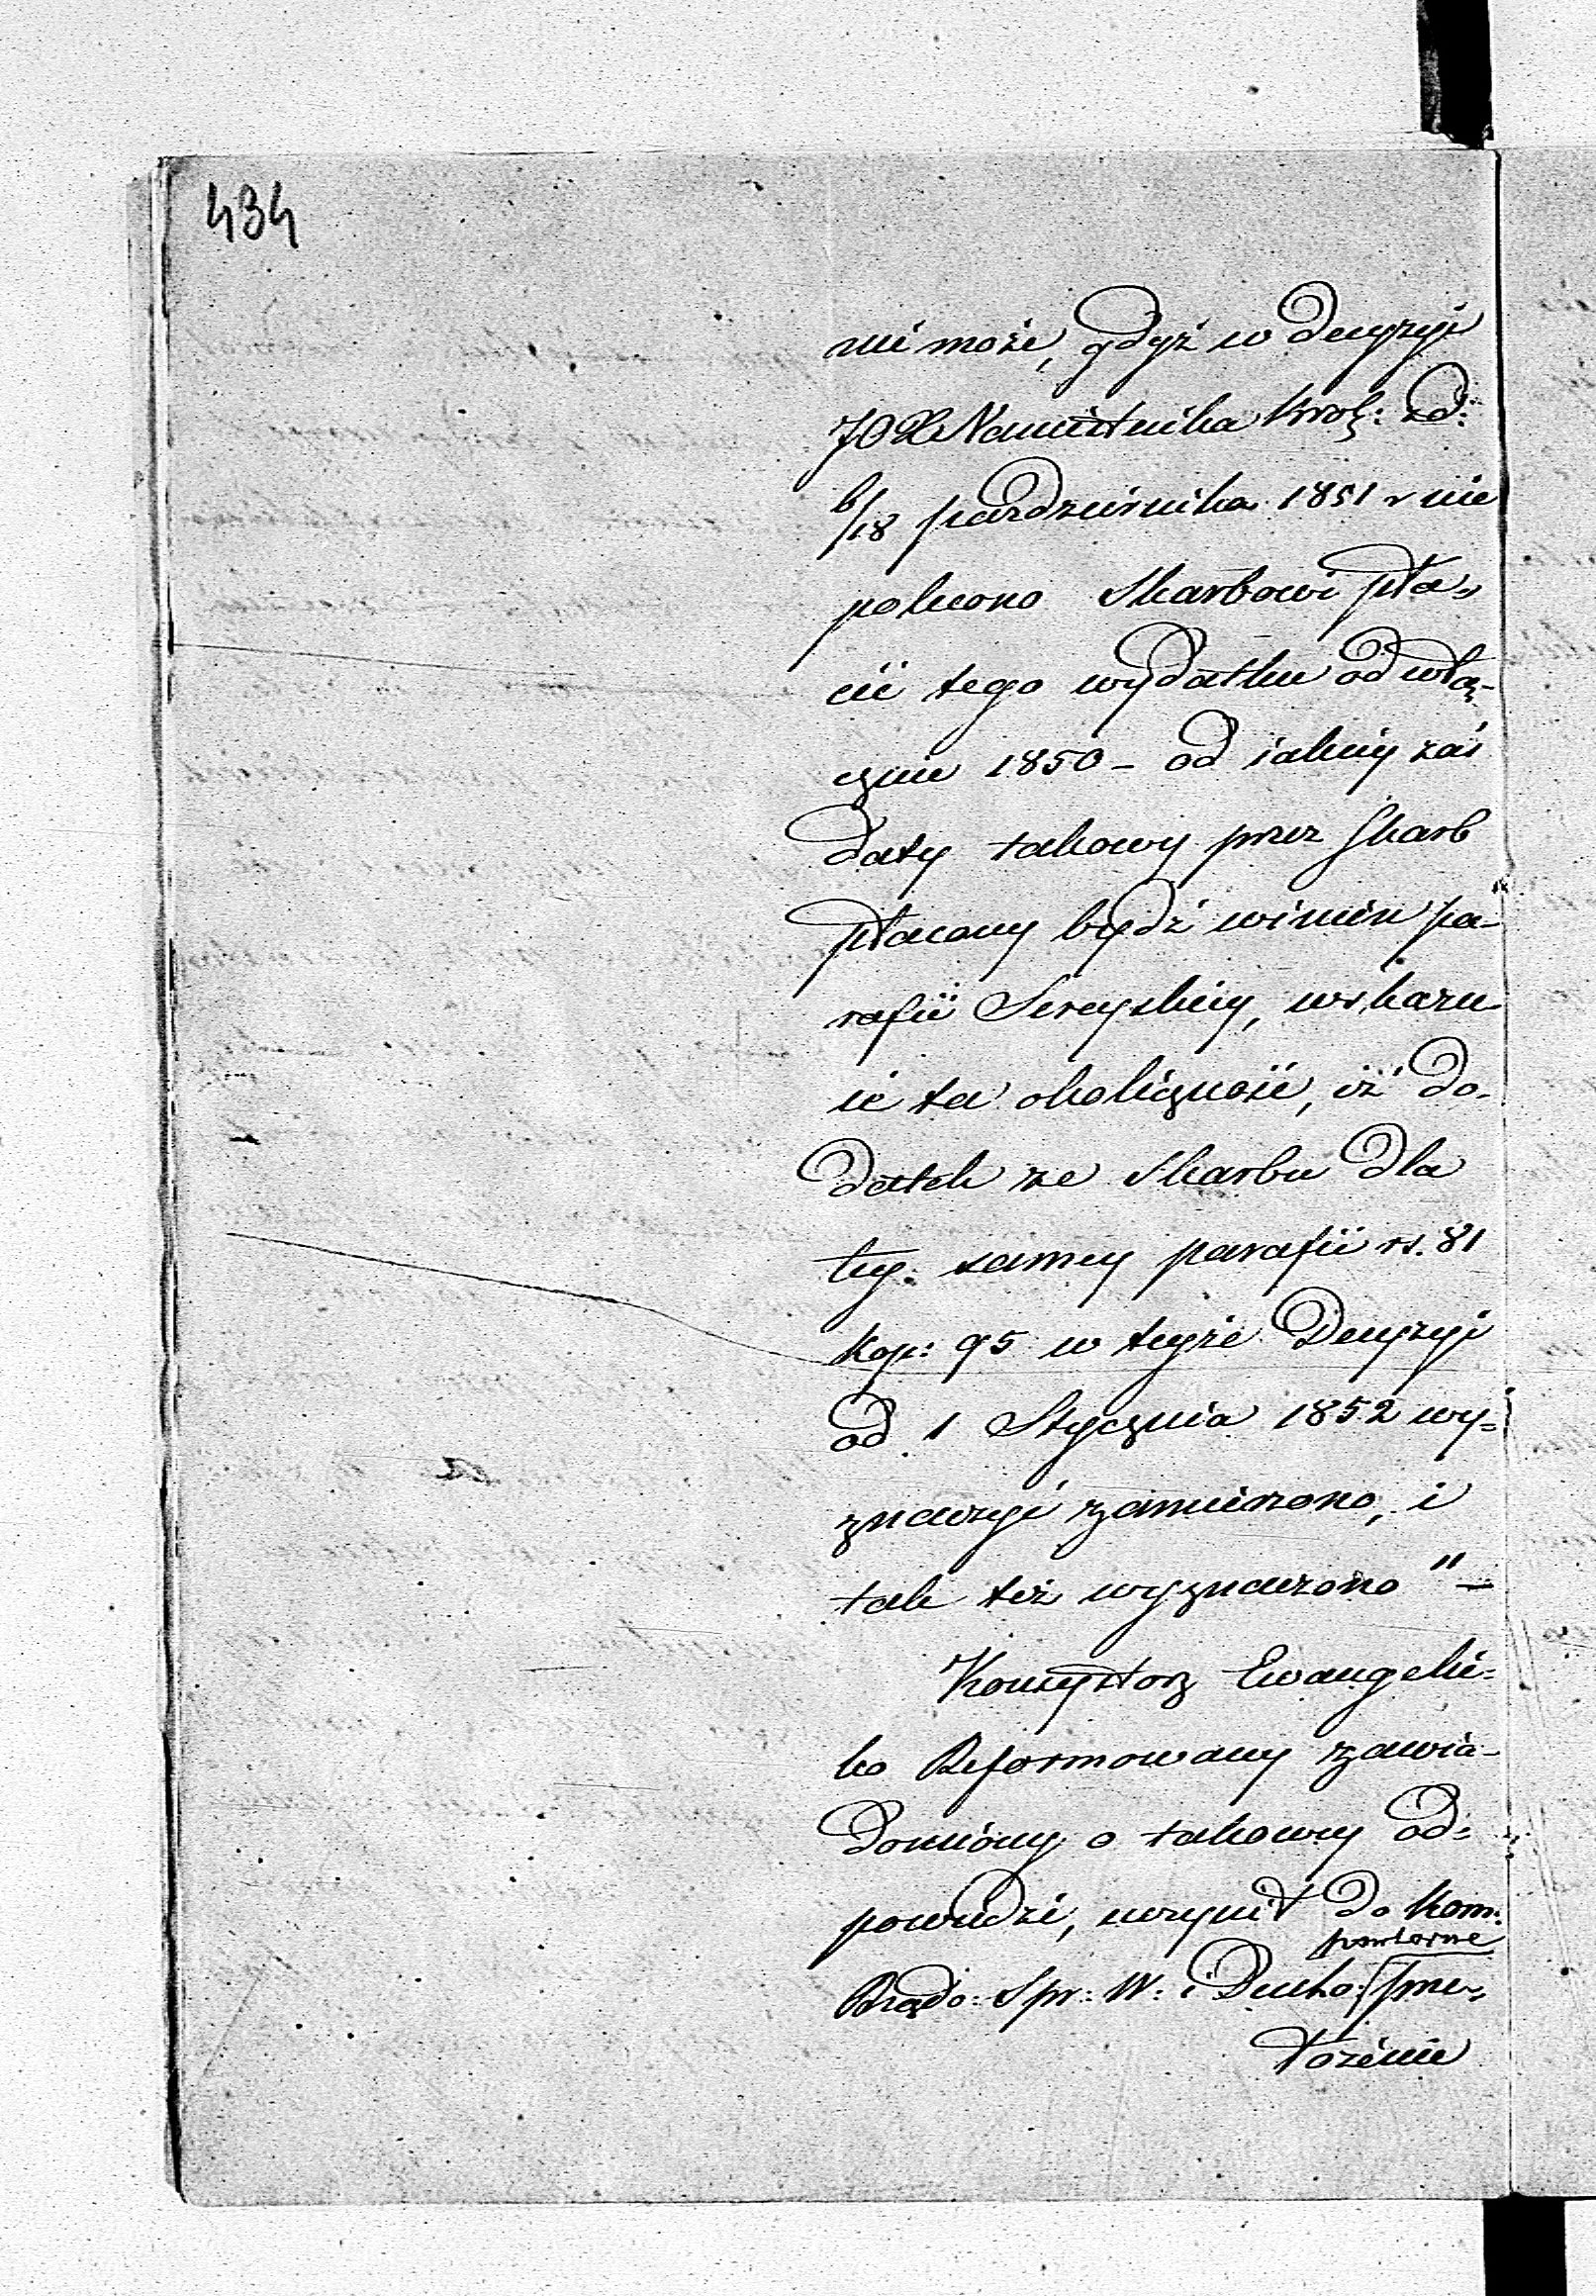 434
nie może, gdyż w Decyzyi
JO X Namiestnika Król: z d:
6/18 października 1851 r nie
polecono Skarbowi pła„
cić tego wydatku od włą-
cznie 1850 – od iakiéy zaś
daty takowy przez Skarb
płacony bydź winien pa-
rafii Sereyskiéy, wskazu
ie ta okoliczność, iż do-
datek ze Skarbu dla
téy: samey parafii rs. 81
kop: 95 w teyże Decyzyi
od 1 Stycznia 1852 wy=
znaczyć zamierzono, i
tak też wyznaczono" –
Konsystorz Ewangelic=
ko Reformowany zawia-
domiony o takowey od=
powiedzi, uczynił do Kom:
powtorne
Rządo: Spr: W: i Ducho: prze„
łożenie